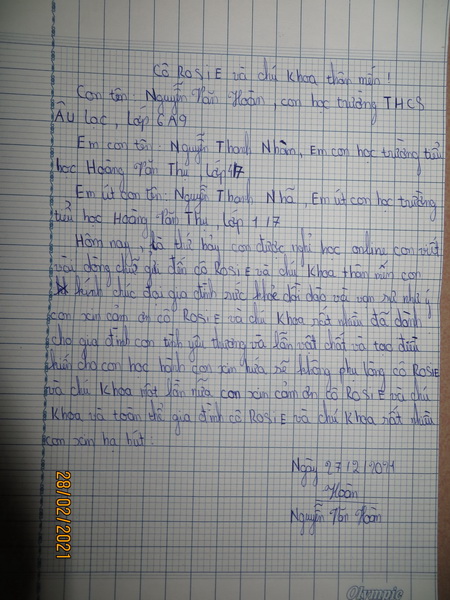 Cô ROSiE và chú Khoa thân mến!
Con tên: Nguyễn Văn Hoàn, con học trường THCS
ÂU LẠC, Lớp 6A9
Em con tên: Nguyễn Thanh Nhàm, Em con học trường tiểu
học Hoàng Văn Thụ, Lớp 4/7
Em út con tên: Nguyễn Thanh Nhã, Em út con học trường
tiểu học Hoàng Văn Thụ Lớp 1/7
Hôm nay, là thứ bảy con được nghỉ học online con viết
vài dòng chữ gửi đến cô ROSiE và chú Khoa thân mến con
kính chúc đại gia đình sức khỏe dồi dào và vạn sự như ý
con xin cảm ơn cô ROSiE và chú Khoa rất nhiều đã dành
cho gia đình con tình yêu thương và lẫn vật chất và tạo điều
kiện cho con học hành con xin hứa sẽ không phụ lòng cô ROSiE
và chú Khoa một lần nữa con xin cảm ơn cô ROSiE và chú
Khoa và toàn thể gia đình cô ROSiE và chú Khoa rất nhiều
con xin hạ bút.
Ngày 27/2/2021
Hoàn
Nguyễn Văn Hoàn
28/02/2021
Olympic